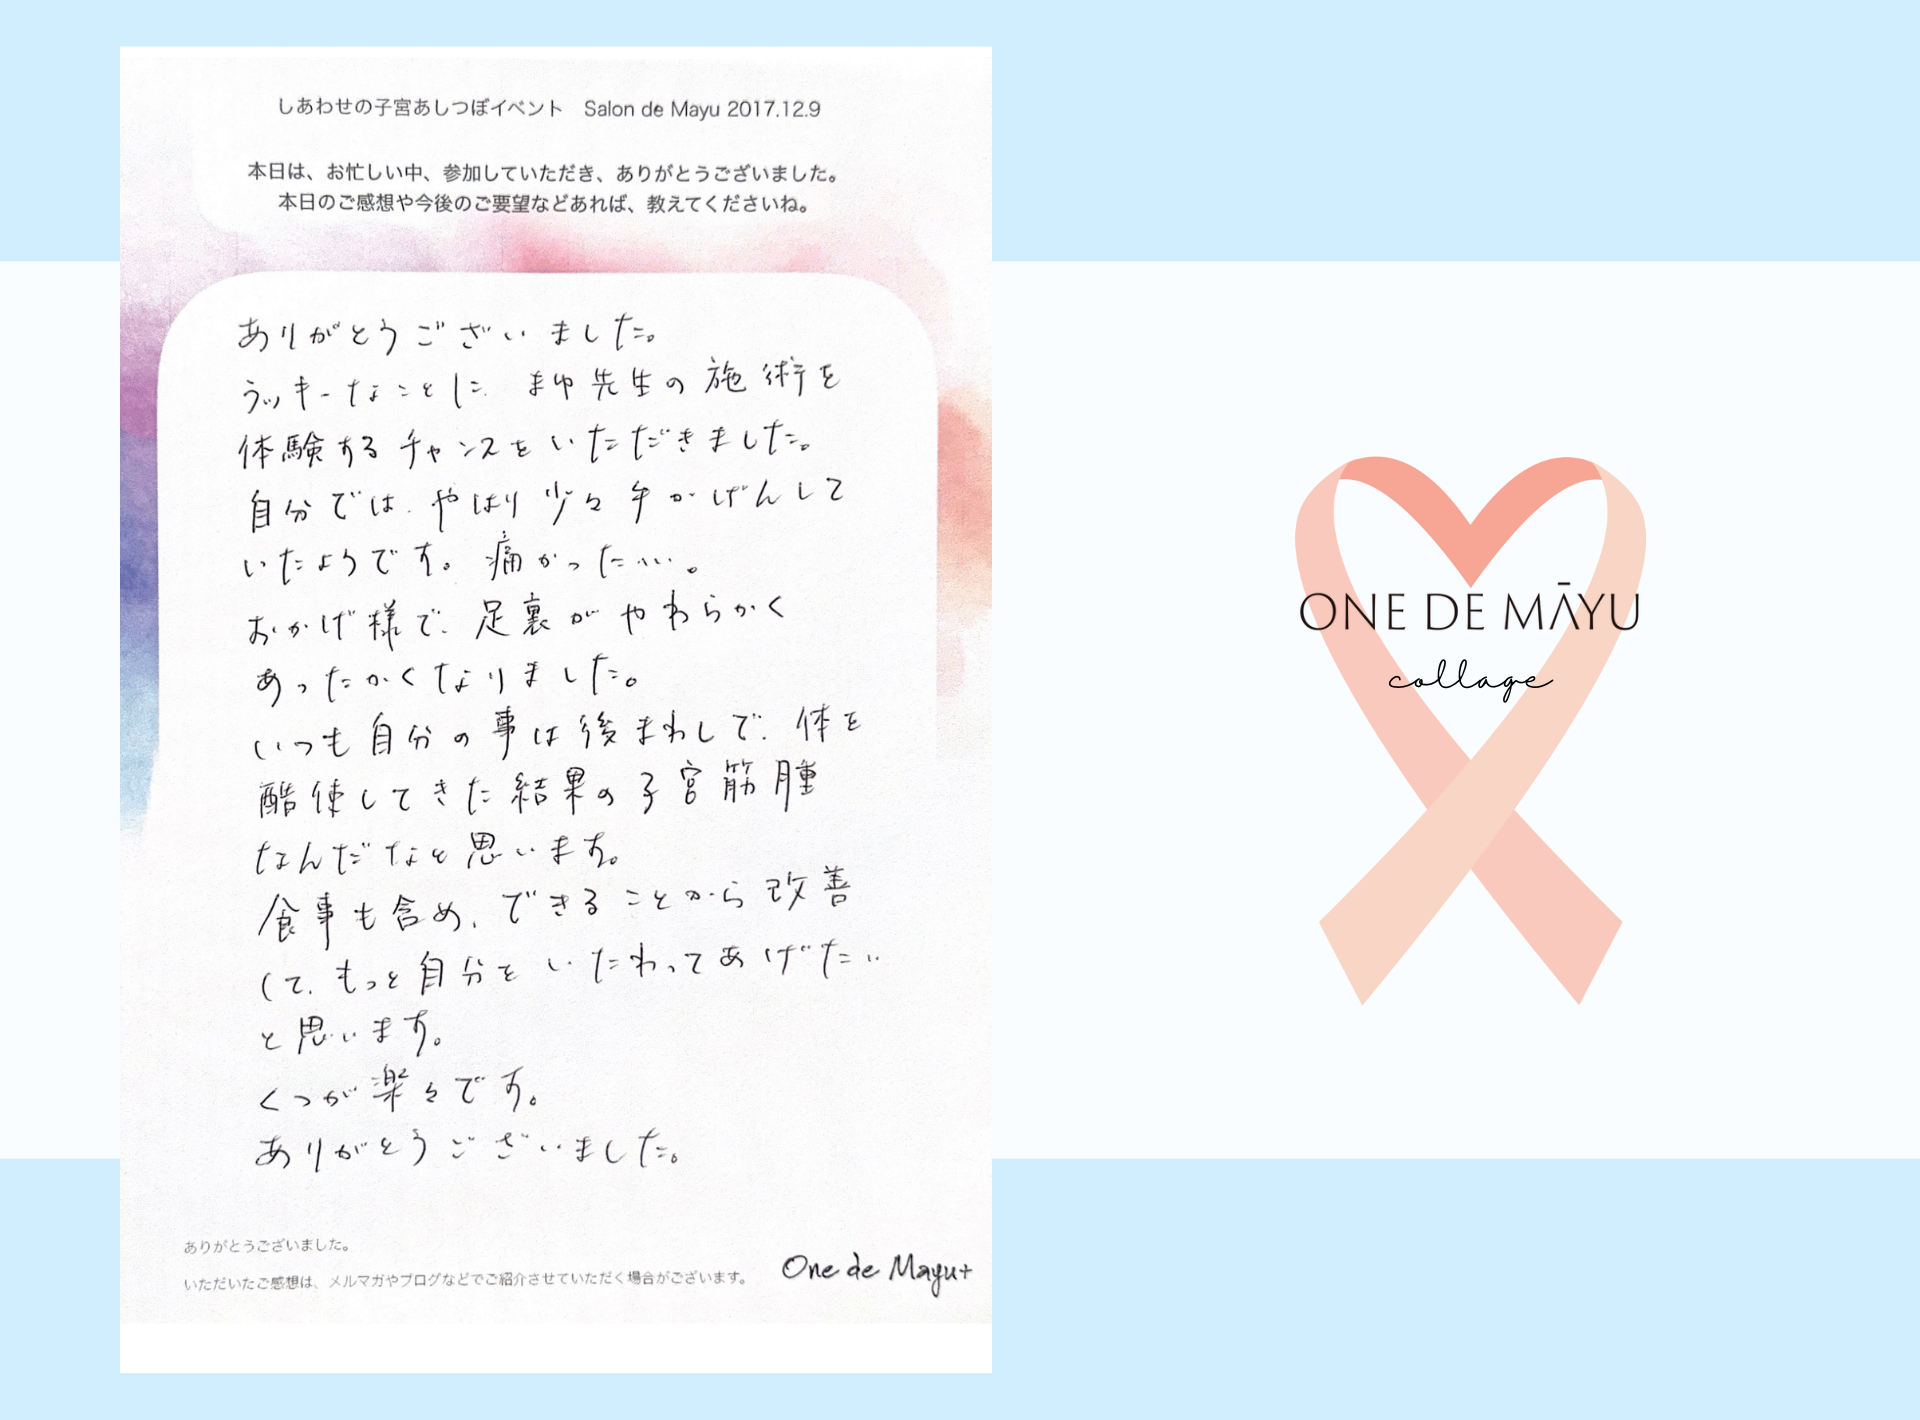 しあわせの子宮あしつぼイベント　Salon de Mayu 2017.12.9
本日は、お忙しい中、参加していただき、ありがとうございました。
本日のご感想や今後のご要望などあれば、教えてくださいね。
ありがとうございました。
ラッキーなことに、まゆ先生の施術を
体験するチャンスをいただきました。
自分では、やはり少々手かげんして
いたようです。痛かった…。
おかげ様で、足裏がやわらかく
あったかくなりました。
いつも自分の事は後まわしで、体を
酷使してきた結果の子宮筋腫
なんだなと思います。
食事も含め、できることから改善
して、もっと自分をいたわってあげたい
と思います。
くつが楽々です。
ありがとうございました。
ありがとうございました。
いただいたご感想は、メルマガやブログなどでご紹介させていただく場合がございます。
One de Mayu+
ONE DE MĀYU
collage